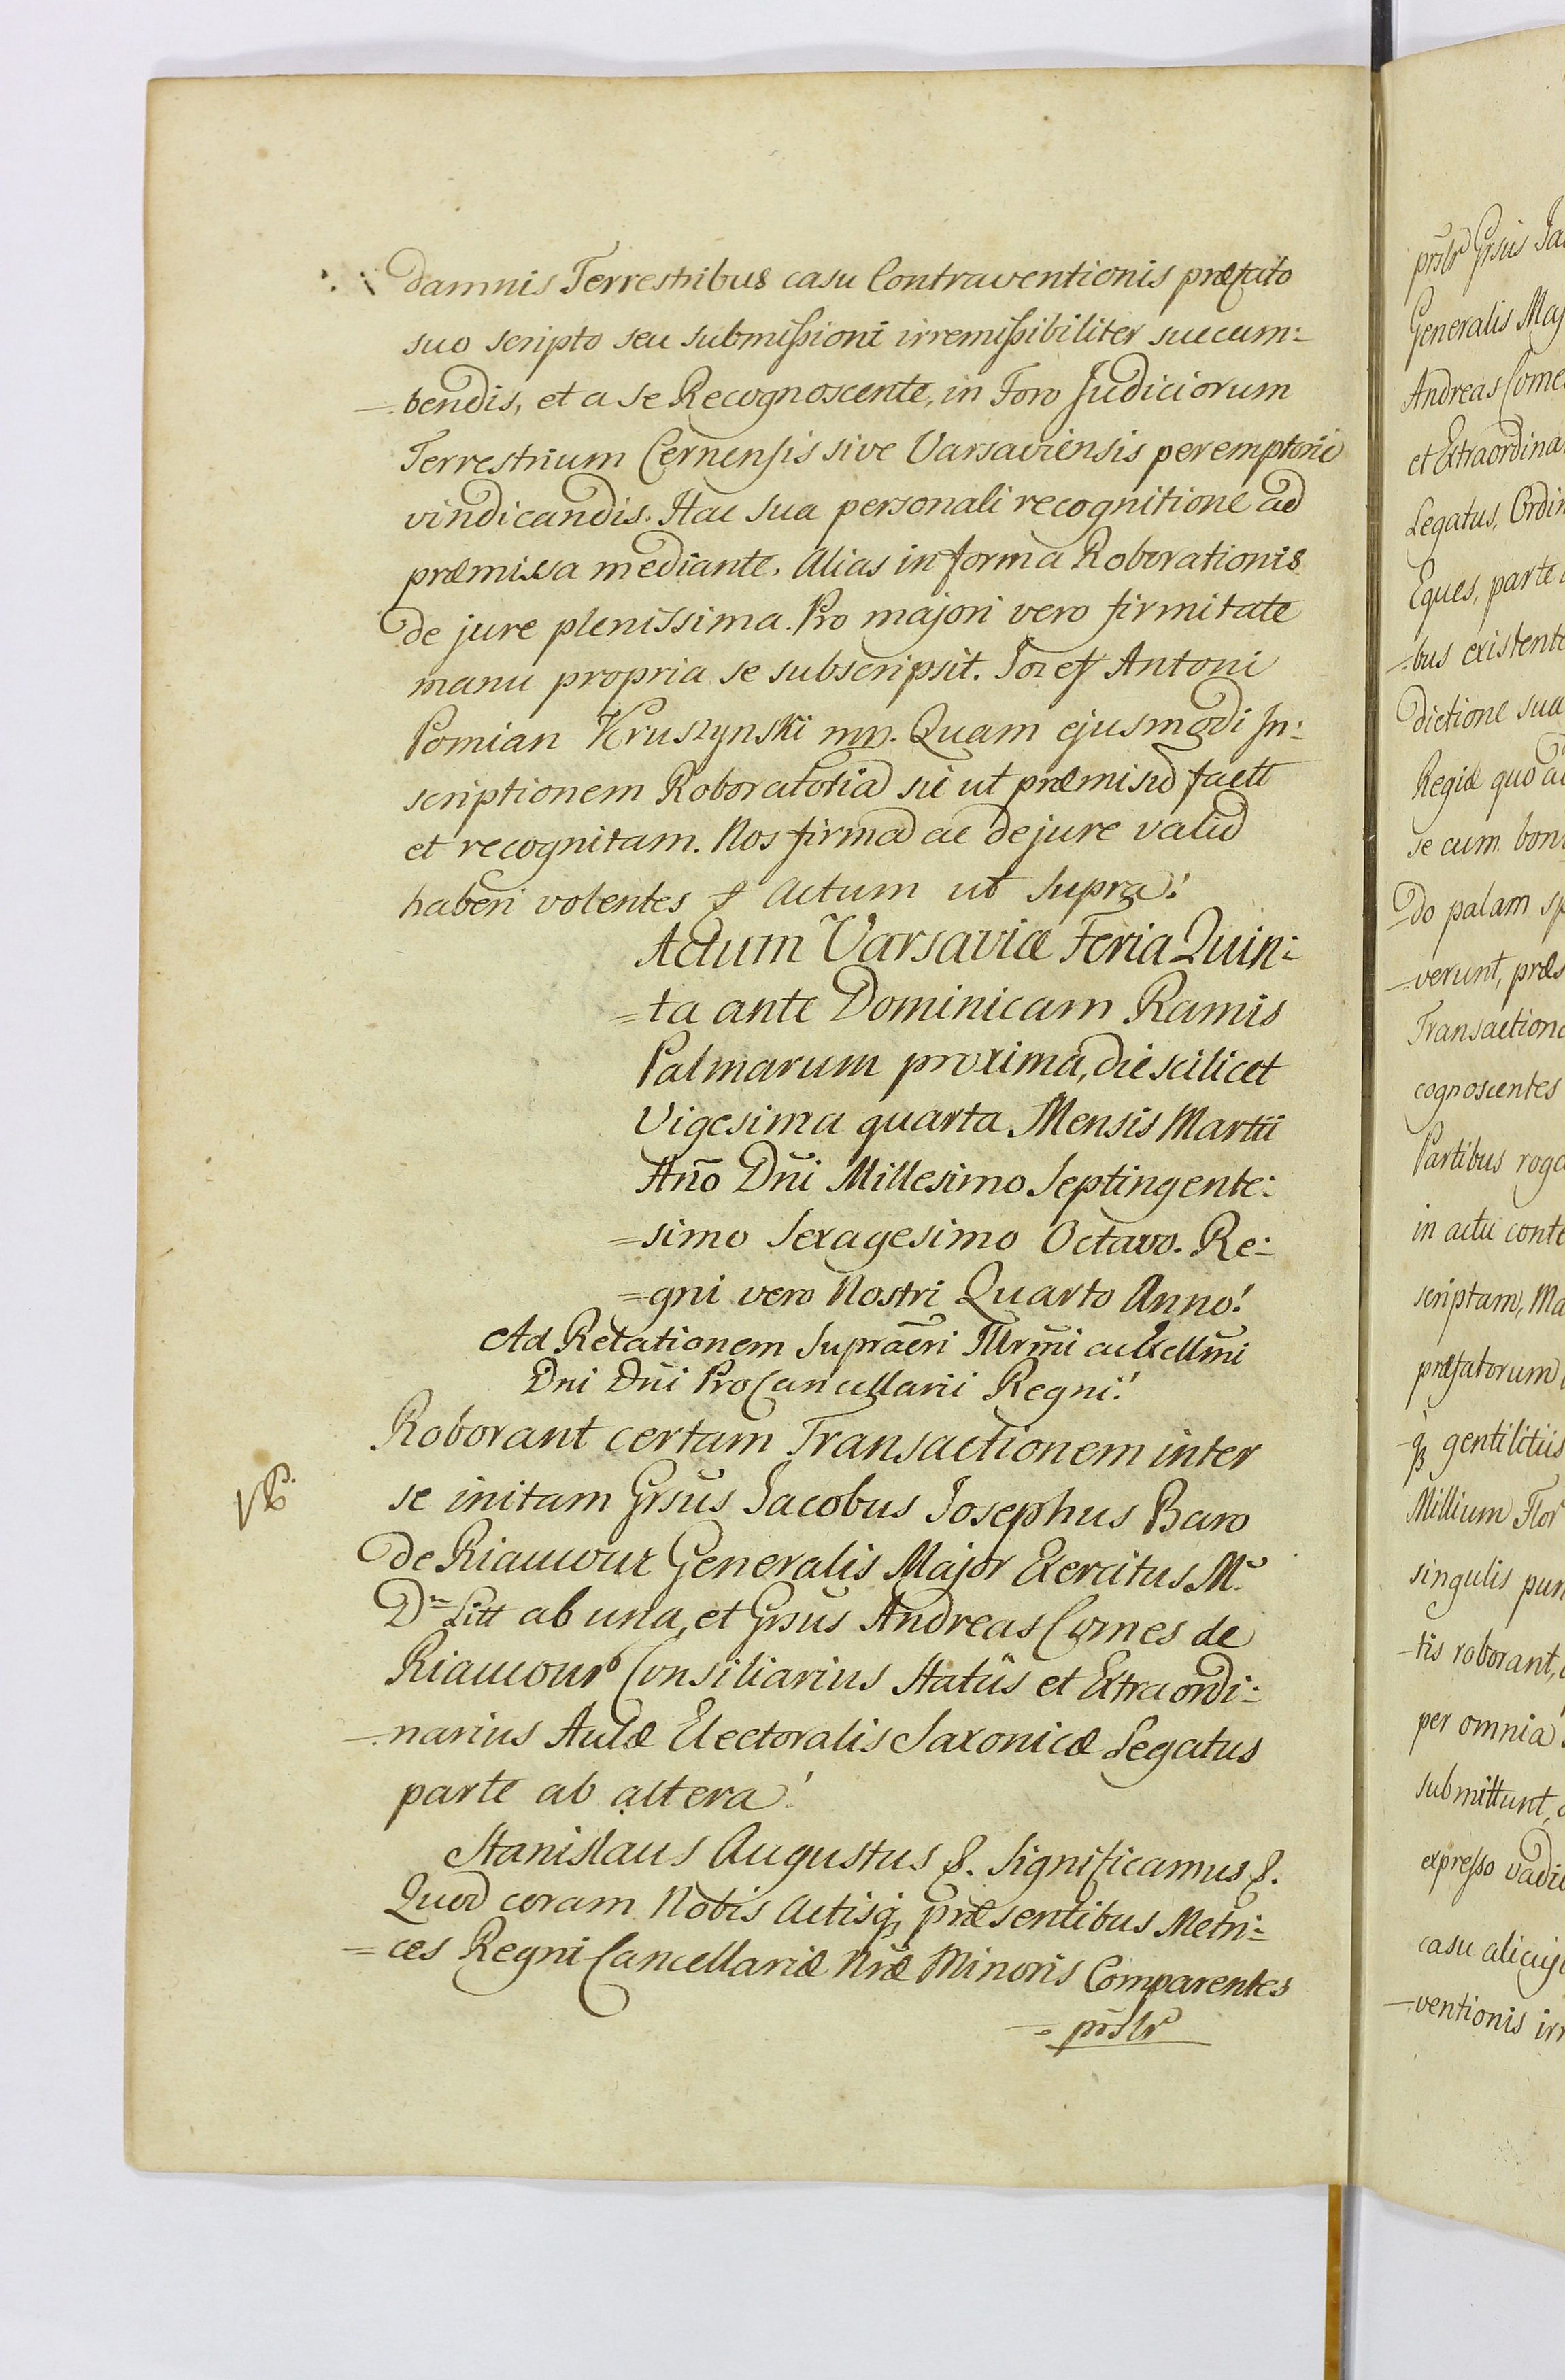 damnis Terrestribus casu Contraventionis præfato
suo scripto seu submissioni irremissibiliter succum:
=bendis, et a se Recognoscente, in Foro Judiciorum
Terrestrium Cernensis sive Varsaviensis peremptorie
vindicandis. Hac sua personali recognitione ad
præmissa mediante. Alias in forma Roborationis
de jure plenissima. Pro majori vero firmitate
manu propria se subscripsit. Jozef Antoni
Pomian Kruszynski mp. Quam ejusmodi In:
scriptionem Roboratoria sic ut præmisd factt
et recognitam. Nos firmà ac de jure valid
haberi volentes Actum ut supra.
Actum Varsaviæ Feria Quin:
=ta ante Dominicam Ramis
Palmarum proxima, die scilicet
Vigesima quarta Mensis Martii
Año Dñi Millesimo Septingente:
=simo Sexagesimo Octavo. Re:
=gni vero Nostri Quarto Anno.
Ad Relationem
Dni Dñi ProCancellarii Regni.
Roborant certam Transactionem inter
se initam Grsus Jacobus Josephus Baro
de Riaucour Generalis Major Exercitus M.
D. Litt ab una, et Grsus Andreas Comes de
Riaucour Consiliarius Statûs et Extraordi:
=narius Aulæ Electoralis Saxonicæ Legatus
parte ab altera.
Stanislaus Augustus &. Significamus &.
Quod coram Nobis Actisq præsentibus Metri:
=ces Regni Cancellariæ Nræ Minoris Comparentes
=prslr
prslr Grsus Ja
Generalis Maj
Andreas Come
et Extraordina
Legatus, Ordin
Eques, parte
=bus existente
dictione sua
Regiæ quo a
se cum bon
do palam sp
=verunt, præs
Transactione
cognoscentes
Partibus roga
in actu conte
scriptam, Ma
præfatorum
q gentilitiis
Millium Flor
singulis pun
=tis roborant,
per omnia
submittunt,
expresso vadi
casu alicuj
=ventionis irr